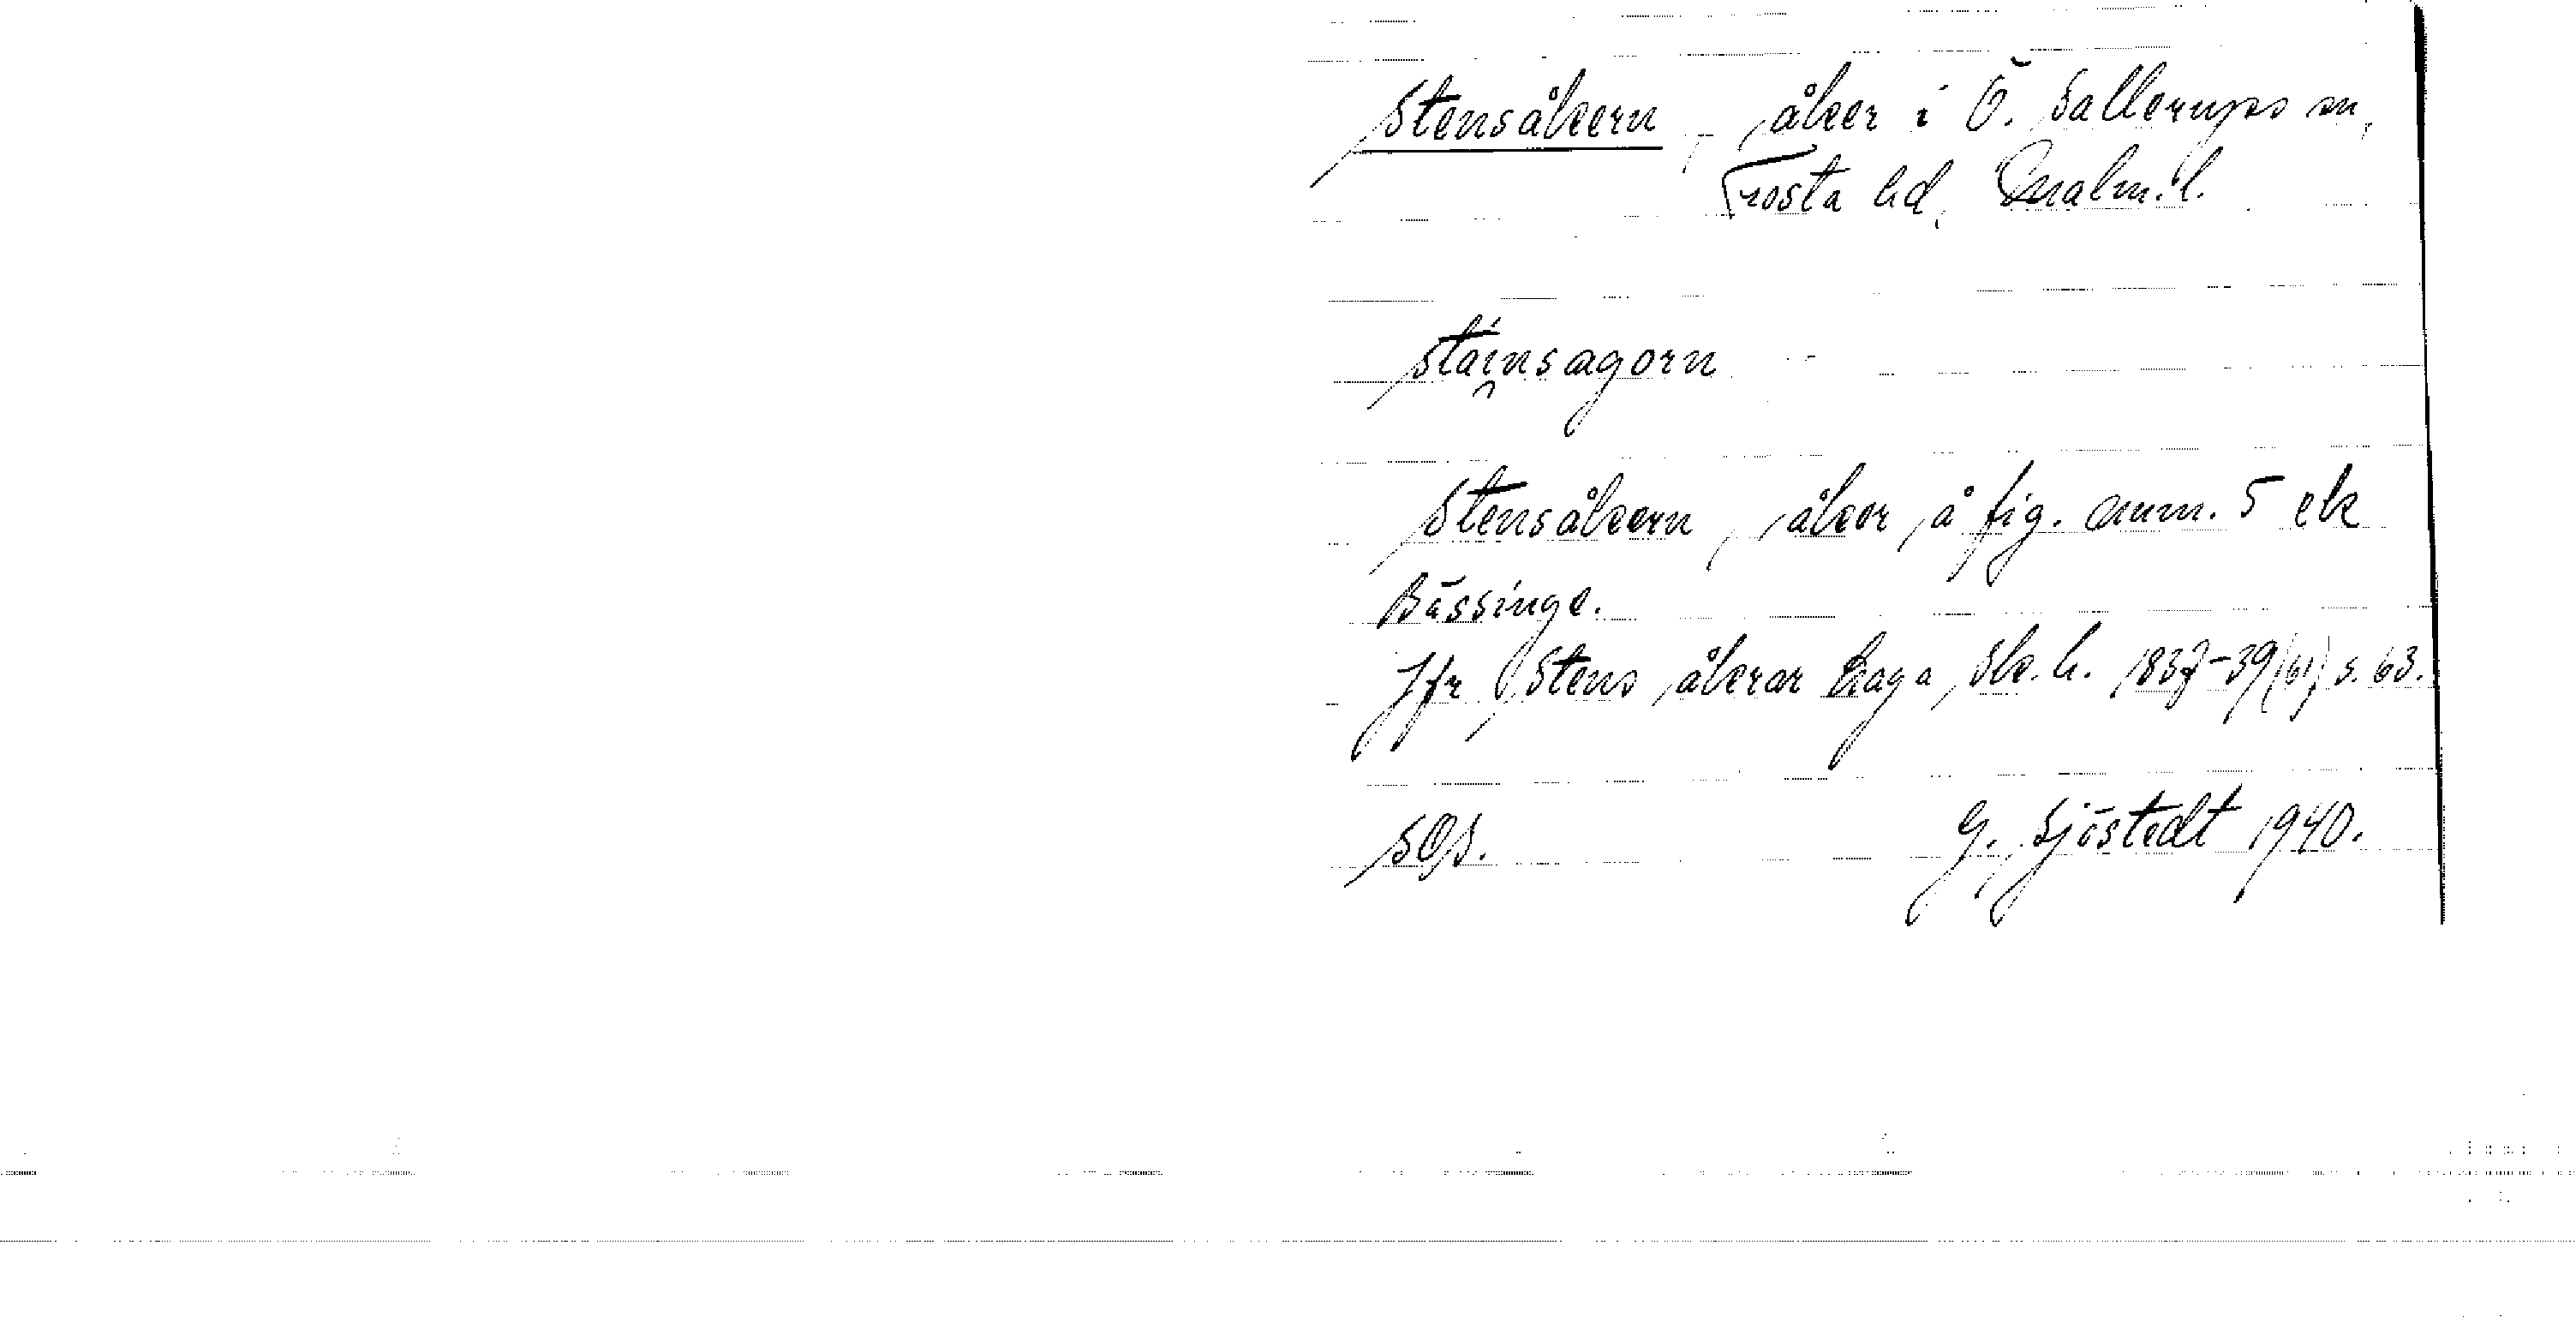 Stensåkern, åker i Ö. Sallerups sn,
Frosta hd, Malm.l.
stai̯nsagorn
Stensåkern, åker å fig. omm. 5 ek
Bässinge.
Jfr Stens åkrar Haga, Sk.h. 1837-39(61) s. 63.
SOS. G. Sjöstedt 1940.